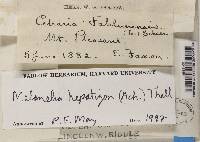 Cetraria Fahlunensis
(L.) Schaer.
Mt. Pleasant
5 June 1882. E. Faxon.
FARLOW HERBARIUM, HARVARD UNIVERSITY
Melanelia hepatizon (Ach.) Thell
P.F. May 1992
LINCOLN W. RIDDLE